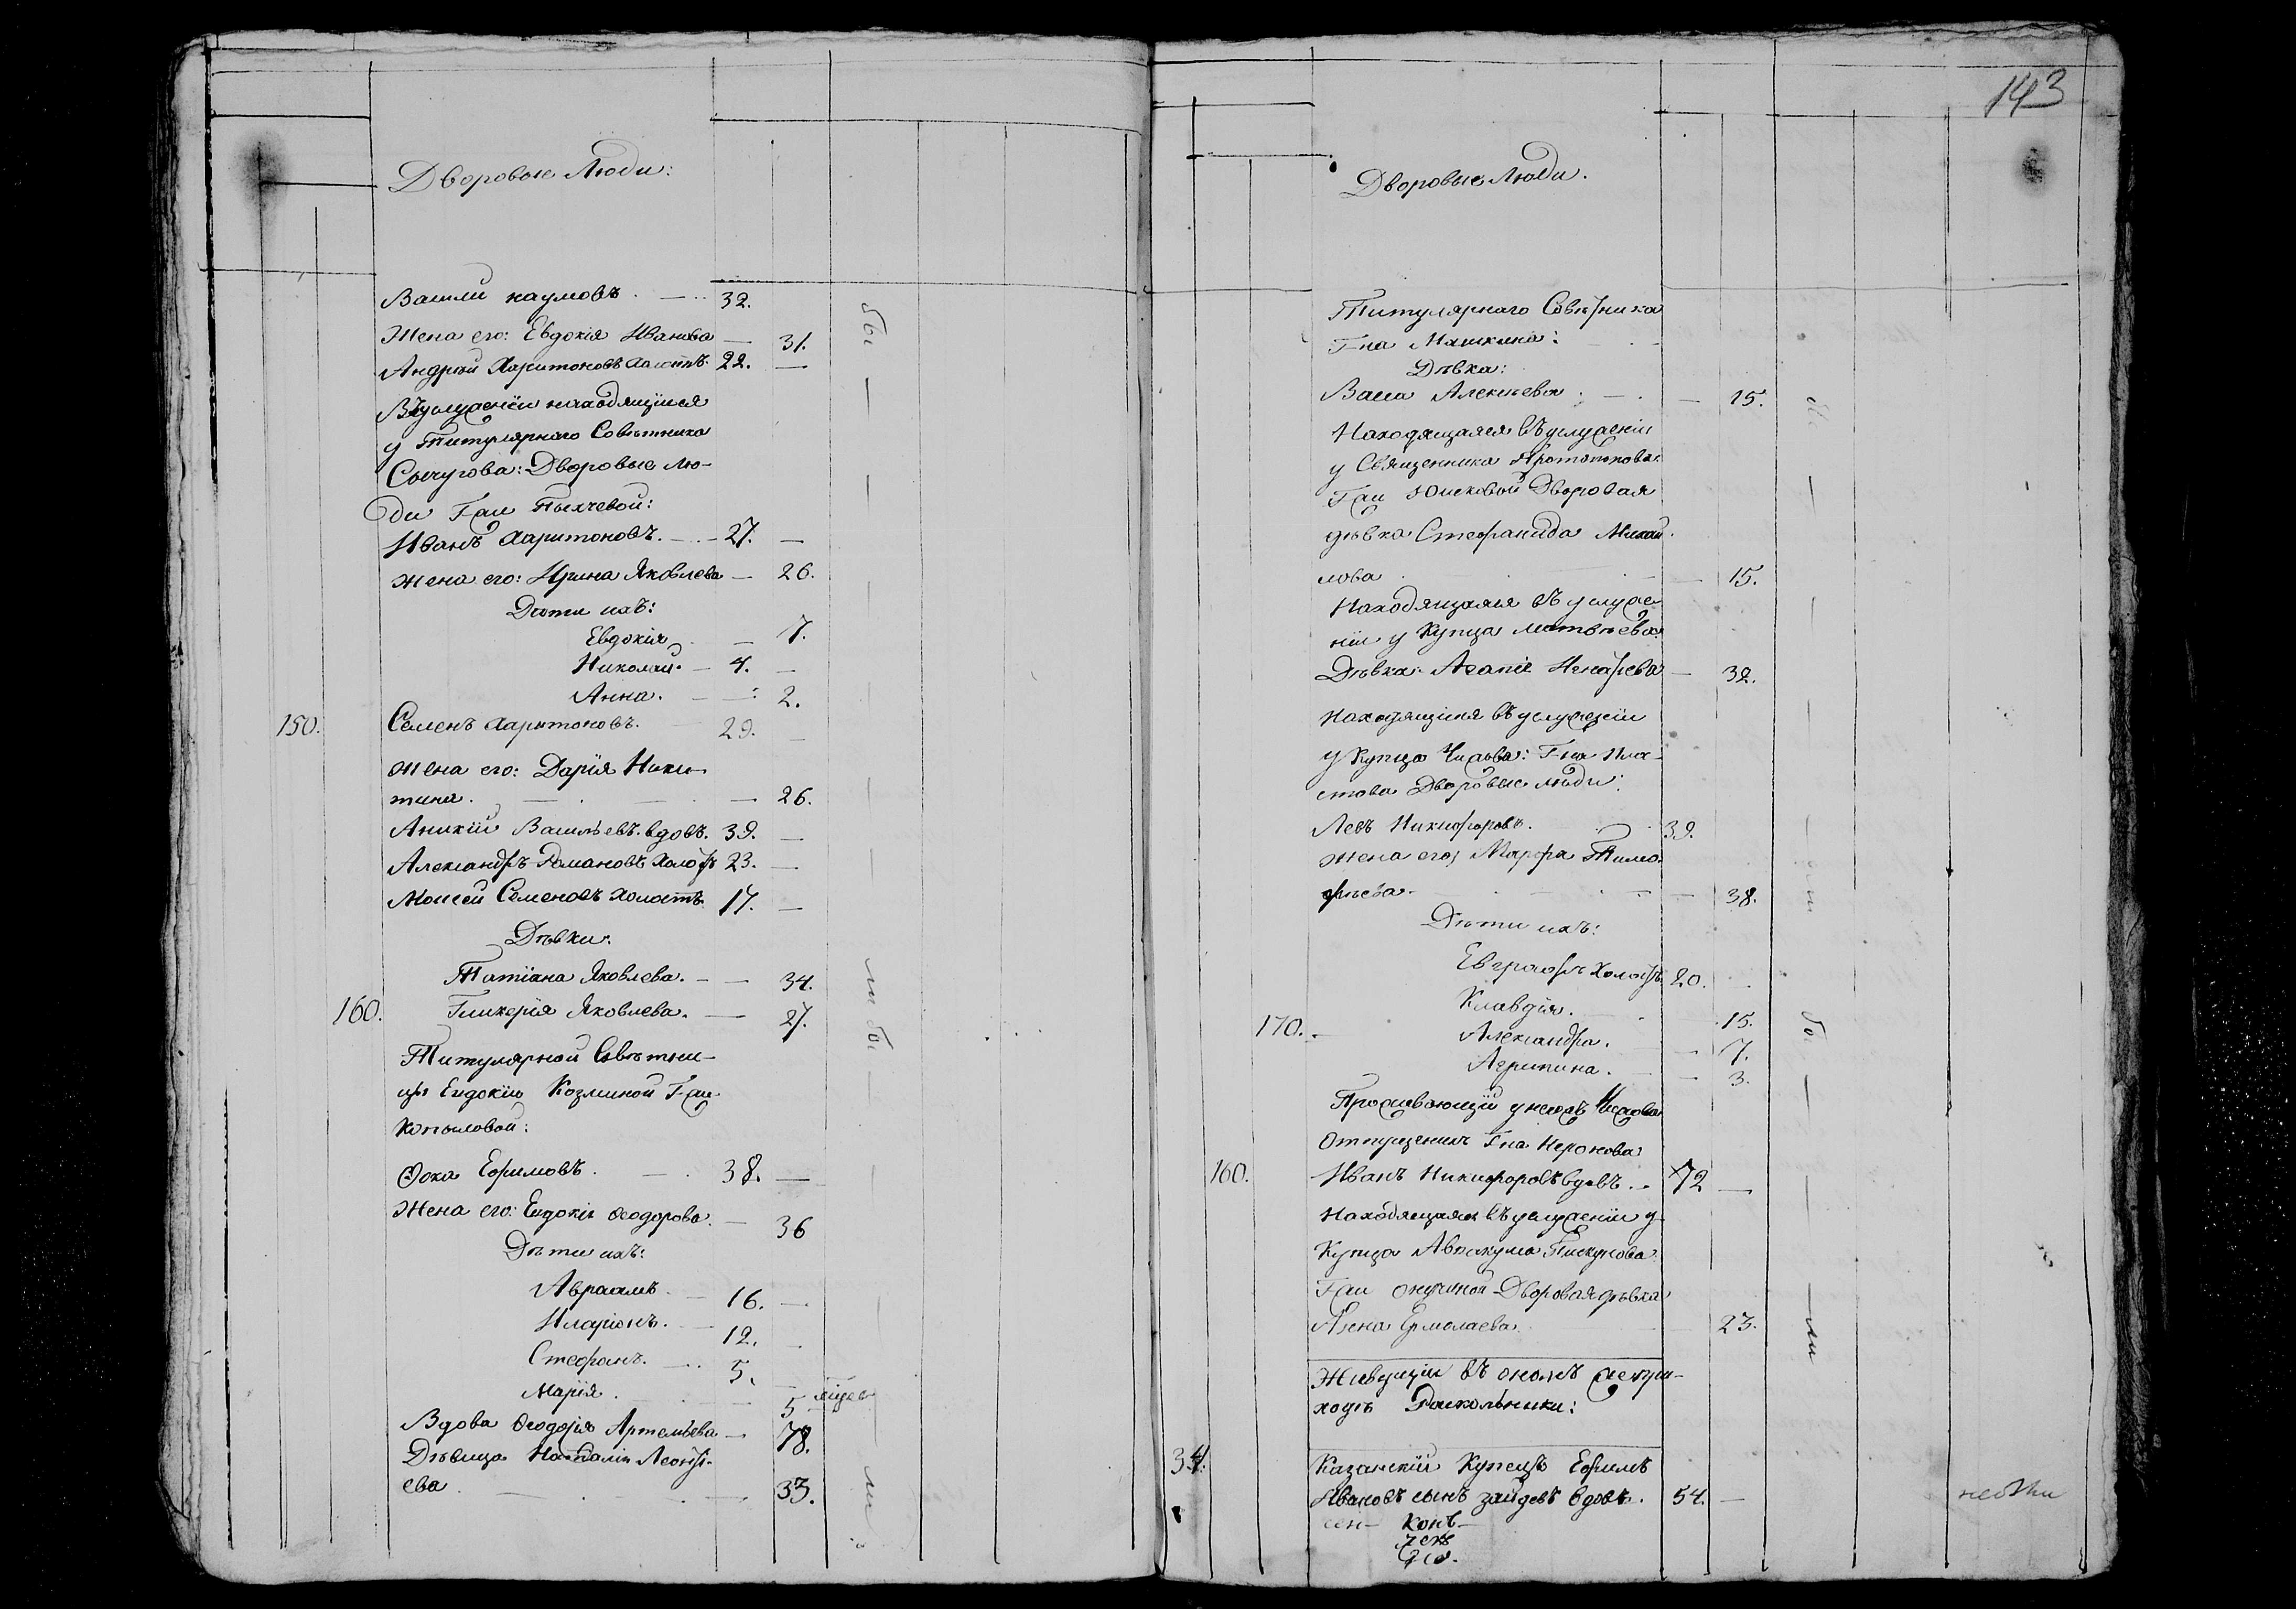 Дворовые Люди:
Василiй наумовъ. 32.
Жена его: Евдокiя Иванова — 31.
Андрей Харитоновъ холостъ. 22. —
Въ услуженiи находящiися
у Титулярнаго Советника
Сычугова: Дворовые лю-
ди Гжи Пыхчевой:
Иванъ Харитоновъ. — 27. —
жена его: Ирина Яковлева — 26.
Дети ихъ:
Евдокiя — 7.
Николай. — 4. —
Анна. — 2.
150. Семенъ Харитоновъ. 29. —
жена его: Дарiя Ники-
тина. — 26.
Аникiй Васильевъ вдовъ. 39. —
Александръ Романовъ холостъ 23. —
Моисей Семеновъ холостъ 17. —
Девки:
Татiана Яковлева. — 34.
160. Гликерiя Яковлева. — 27.
Титулярной Советни-
цы Евдокiи Козминой Гжи
Копыловой:
Фока Ефимовъ. 38. —
Жена его: Евдокiя Феодорова. — 36
Дети ихъ:
Авраамъ. — 16. —
Иларiонъ. — 12. —
Стефанъ. — 5. —
Марiя. — 5
Вдова Феодорiя Артемьева — 78.
Девица Наталiя Леонтi-
ева. — 33.
были
143
Дворовые Люди.
Титулярнаго Советника
Гна Машкина:
Девка:
Васса Алексеева. — 15.
Находящаяся въ услуженiи
у Священника Протопопова
Гжи Юшковой Дворовая
девка Стефанида Михай-
лова — 15.
Находящаяся въ услуже-
нiи у Купца Матвеева
Девка Агапiя Игнатьева — 32.
Находящiися въ услуженiи
у Купца Чисова: Гна
Дворовые люди:
Левъ Никифоровъ. 39.
жена его, Марфа Тимо-
феева. — 38.
Дети ихъ:
Евграфъ холостъ. 20.
Клавдiя. 15.
170. — Александра. — 7.
Агрипина. — 3.
Проживающiй у негожъ Чисова
Отпущеникъ Гна Неронова
160. Иванъ Никифоровъ вдовъ. — 72 —
Находящаяся въ услуженiи у
Купца Аввакума Пискунова
Гжи Дворовая девка
Анна Ермолаева 23.
Живущiи въ ономъ же при-
ходе Раскольники:
34. Казанскiй Купецъ Ефимъ
Ивановъ сынъ Зайцевъ вдовъ. 54. —